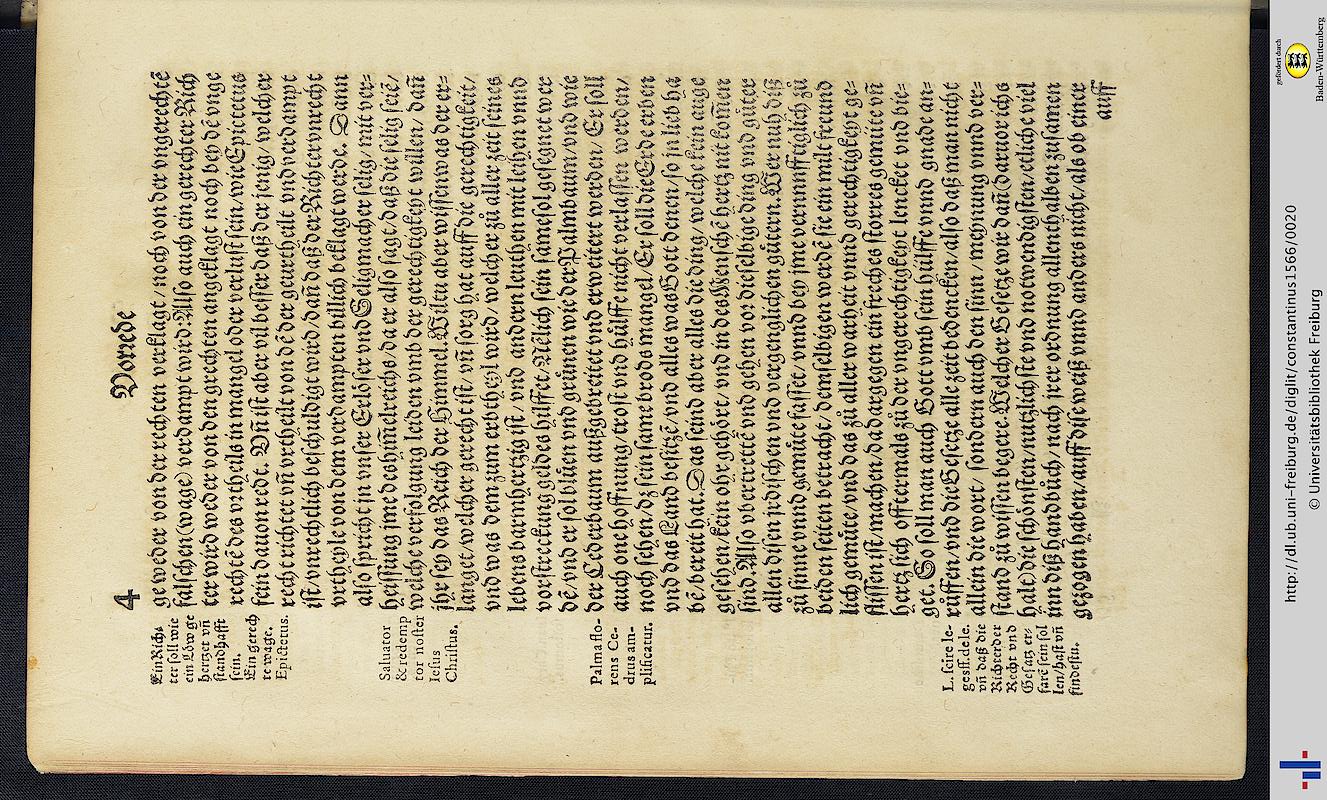 4
Vorrede
ge weder von der rechten verklagt / noch von der vngerechtẽ
falschen (wage) verdampt wird. Also auch ein gerechter Rich
ter wird weder von den grechten angeklagt noch bey dẽ vnge
rechtẽ des vrtheils in mangel oder verlast sein / wie Epictetus
sen dauon redt. Vñ ist aber vil besser daß der jenig / welcher
recht richtet vñ vrtheilt von dẽ der geurtheilt vnd verdampt
ist / vnrechtlich beschuldigt wird / dañ daß der Richter vnrecht
vrtheyle von dem verdampten billich beklagt werde. Dann
also spricht jn vnser Erlöser vnd Seligmacher selig / mit ver-
heissung jme des him̃elreichs / da er also sagt / daß die selig seiẽ /
welche verfolgung leiden vmb der gerechtigkeyt willen / dañ
jhr sey das Reich der Himmel. Wiltu aber wissen was der er-
langet / welcher gerecht ist / vñ sorg hat auff die gerechtigkeit /
vnd was dem zum erbtheyl wird / welcher zů aller zeit seines
lebens barmhertzig ist / vnd andern leuthen mit leihen vnnd
vorstreckung geldes hilffet. Nẽlich sein sam sol gesegnet wer
dẽ / vnd er sol blůen vnd grůnen wie der Palmbaum / vnd wie
der Cederbaum außgebreitet vnd erweitert werden / Er soll
auch one hoffnung / trost vnd hülffe nicht verlassen werden /
noch sehen dz sein same brods mangel / Er soll die Erde erben
vnd das Land besitzẽ / vnd alles was Gott denen / so jn lieb ha
bẽ bereit hat. Das seind aber alles die ding / welch kein auge
gesehen / kein ohr gehört / vnd in des Menschẽ hertz nit kom̃en
sind. Also vbertrettẽ vnd gehen vor dieselbige ding vnd güter
allen disen jrdischen vnd vergenglichen gütern. Wer nuh diß
zů sinne vnnd gemüte fasset / vnnd bey jme vernunfftiglich zů
beiden seiten betracht / demselbigen werdẽ sie ein milt freund
lich gemüte / vnd das zů aller warheit vnnd gerechtigkeyt ge-
flissen ist / machen / da dargegen ein frechs storres gemüte vñ
hertz sich offtermals zů der vngerechtigkeyt lencket vnd bie-
get. So soll men auch Gott vmb sein hülffe vnnd gnade an-
rüffen / vnd die Gesetze alle zeit bedencken / also daß man nicht
allein die wort / sondern auch den sinn / meynung vnnd ver-
stand zů wissen begere. Welcher Gesetze wir dañ (deruor ichs
halt) die schönsten / nützlichste vnd notwendigsten / etliche viel
inn diß handbůch / nach jrer ordnung allenthalben zusamen
gezogen haben / auff dise weiß vnnd anders nicht / als ob einer
auff
Ein Rich-
ter soll wie
ein Löw ge
hertzet vñ
standhafft
sein.
Ein gerech
te wage.
Epictetus.
Saluator
& redemp
tor noster
Iesus
Christus.
Palma flo-
rens Ce-
drus am-
plificatur.
L. scire le-
ges ff. de le.
vñ daß die
Richter der
Recht vnd
Gesatz er-
farẽ sein sol
len / hast vñ
findestu.
gefördert durch
Baden-Württemberg
http://dl.ub.uni-freiburg.de/diglit/constantinus1566/0020
© Universitätsbibliothek Freiburg